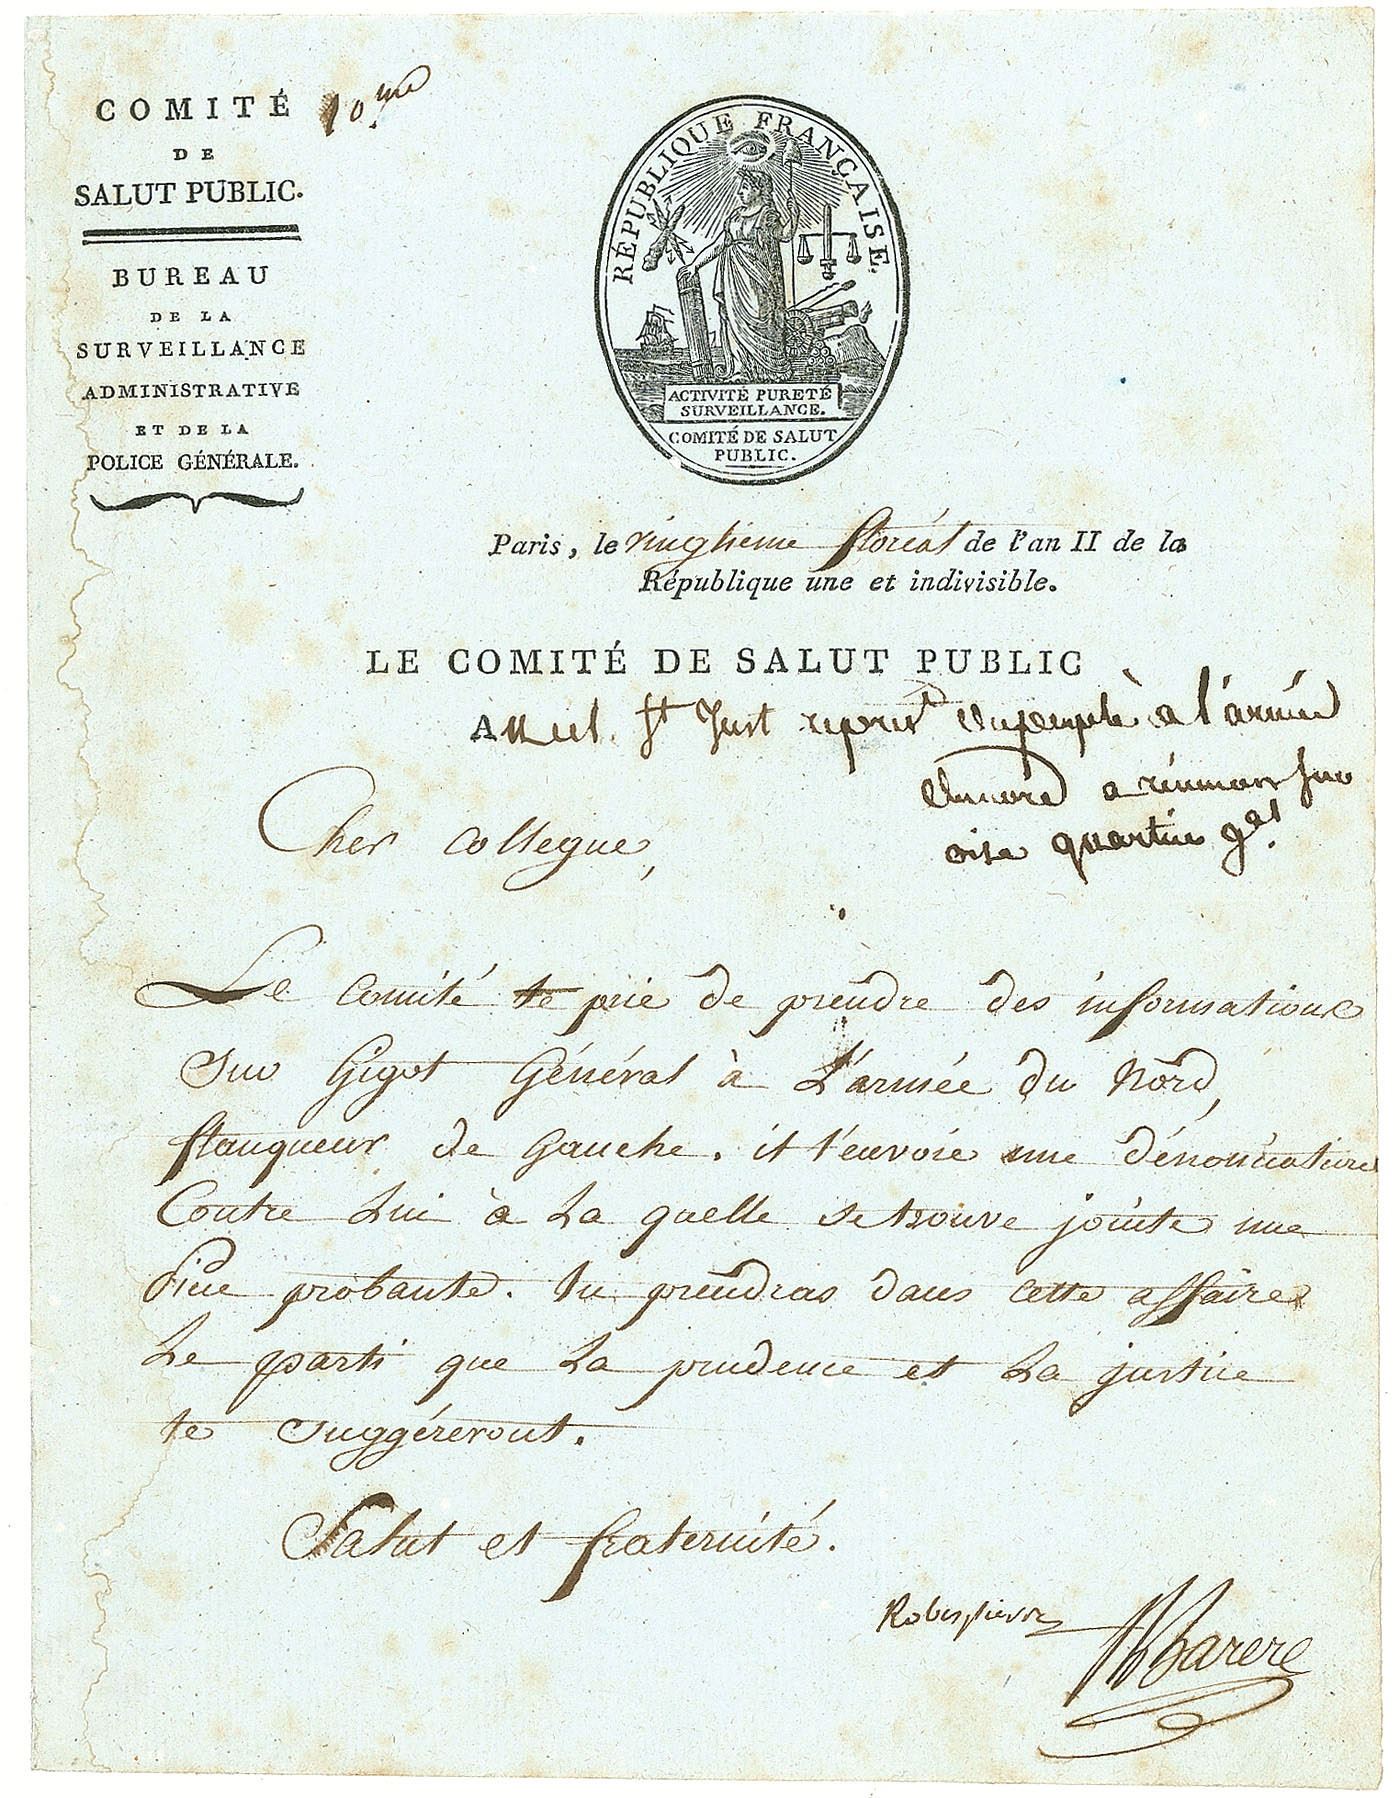 COMITÉ
DE
SALUT PUBLIC.
10.me
BUREAU
DE LA
SURVEILLANCE
ADMINISTRATIVE
ET DE LA
POLICE GÉNÉRALE.
RÉPUBLIQUE FRANÇAISE.
ACTIVITÉ PURETÉ
SURVEILLANCE.
COMITÉ DE SALUT
PUBLIC.
Paris, le vingtieme floréal de l'an II de la
République une et indivisible.
LE COMITÉ DE SALUT PUBLIC
A St Just represt du peuple à l'armée
du nord a reunion sur
oise quartier gal
Cher collegue,
Le comité te prie de prendre des informations
sur Gigot Général à L'armée du Nord,
flanqueur de gauche. il t'envoie une dénonciation
Contre Lui à La quelle se trouve jointe une
Piece probante. tu prendras dans cette affaire
Le parti que La prudence et La justice
te suggéreront.
Salut et fraternité.
Robespierre
Barere